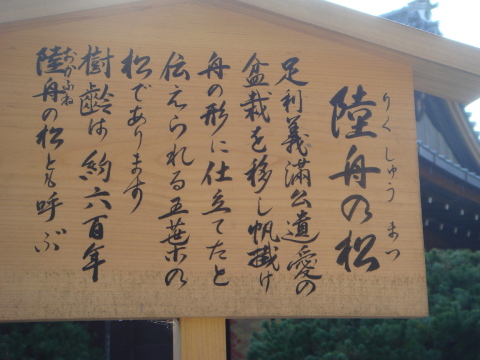 陸舟の松
りくしゅうまつ
足利義満公遺愛の
盆栽を移し帆掛け
舟の形に仕立てたと
伝えられる五葉の
松であります
樹齢は約六百年
陸舟の松とも呼ぶ
おかふね